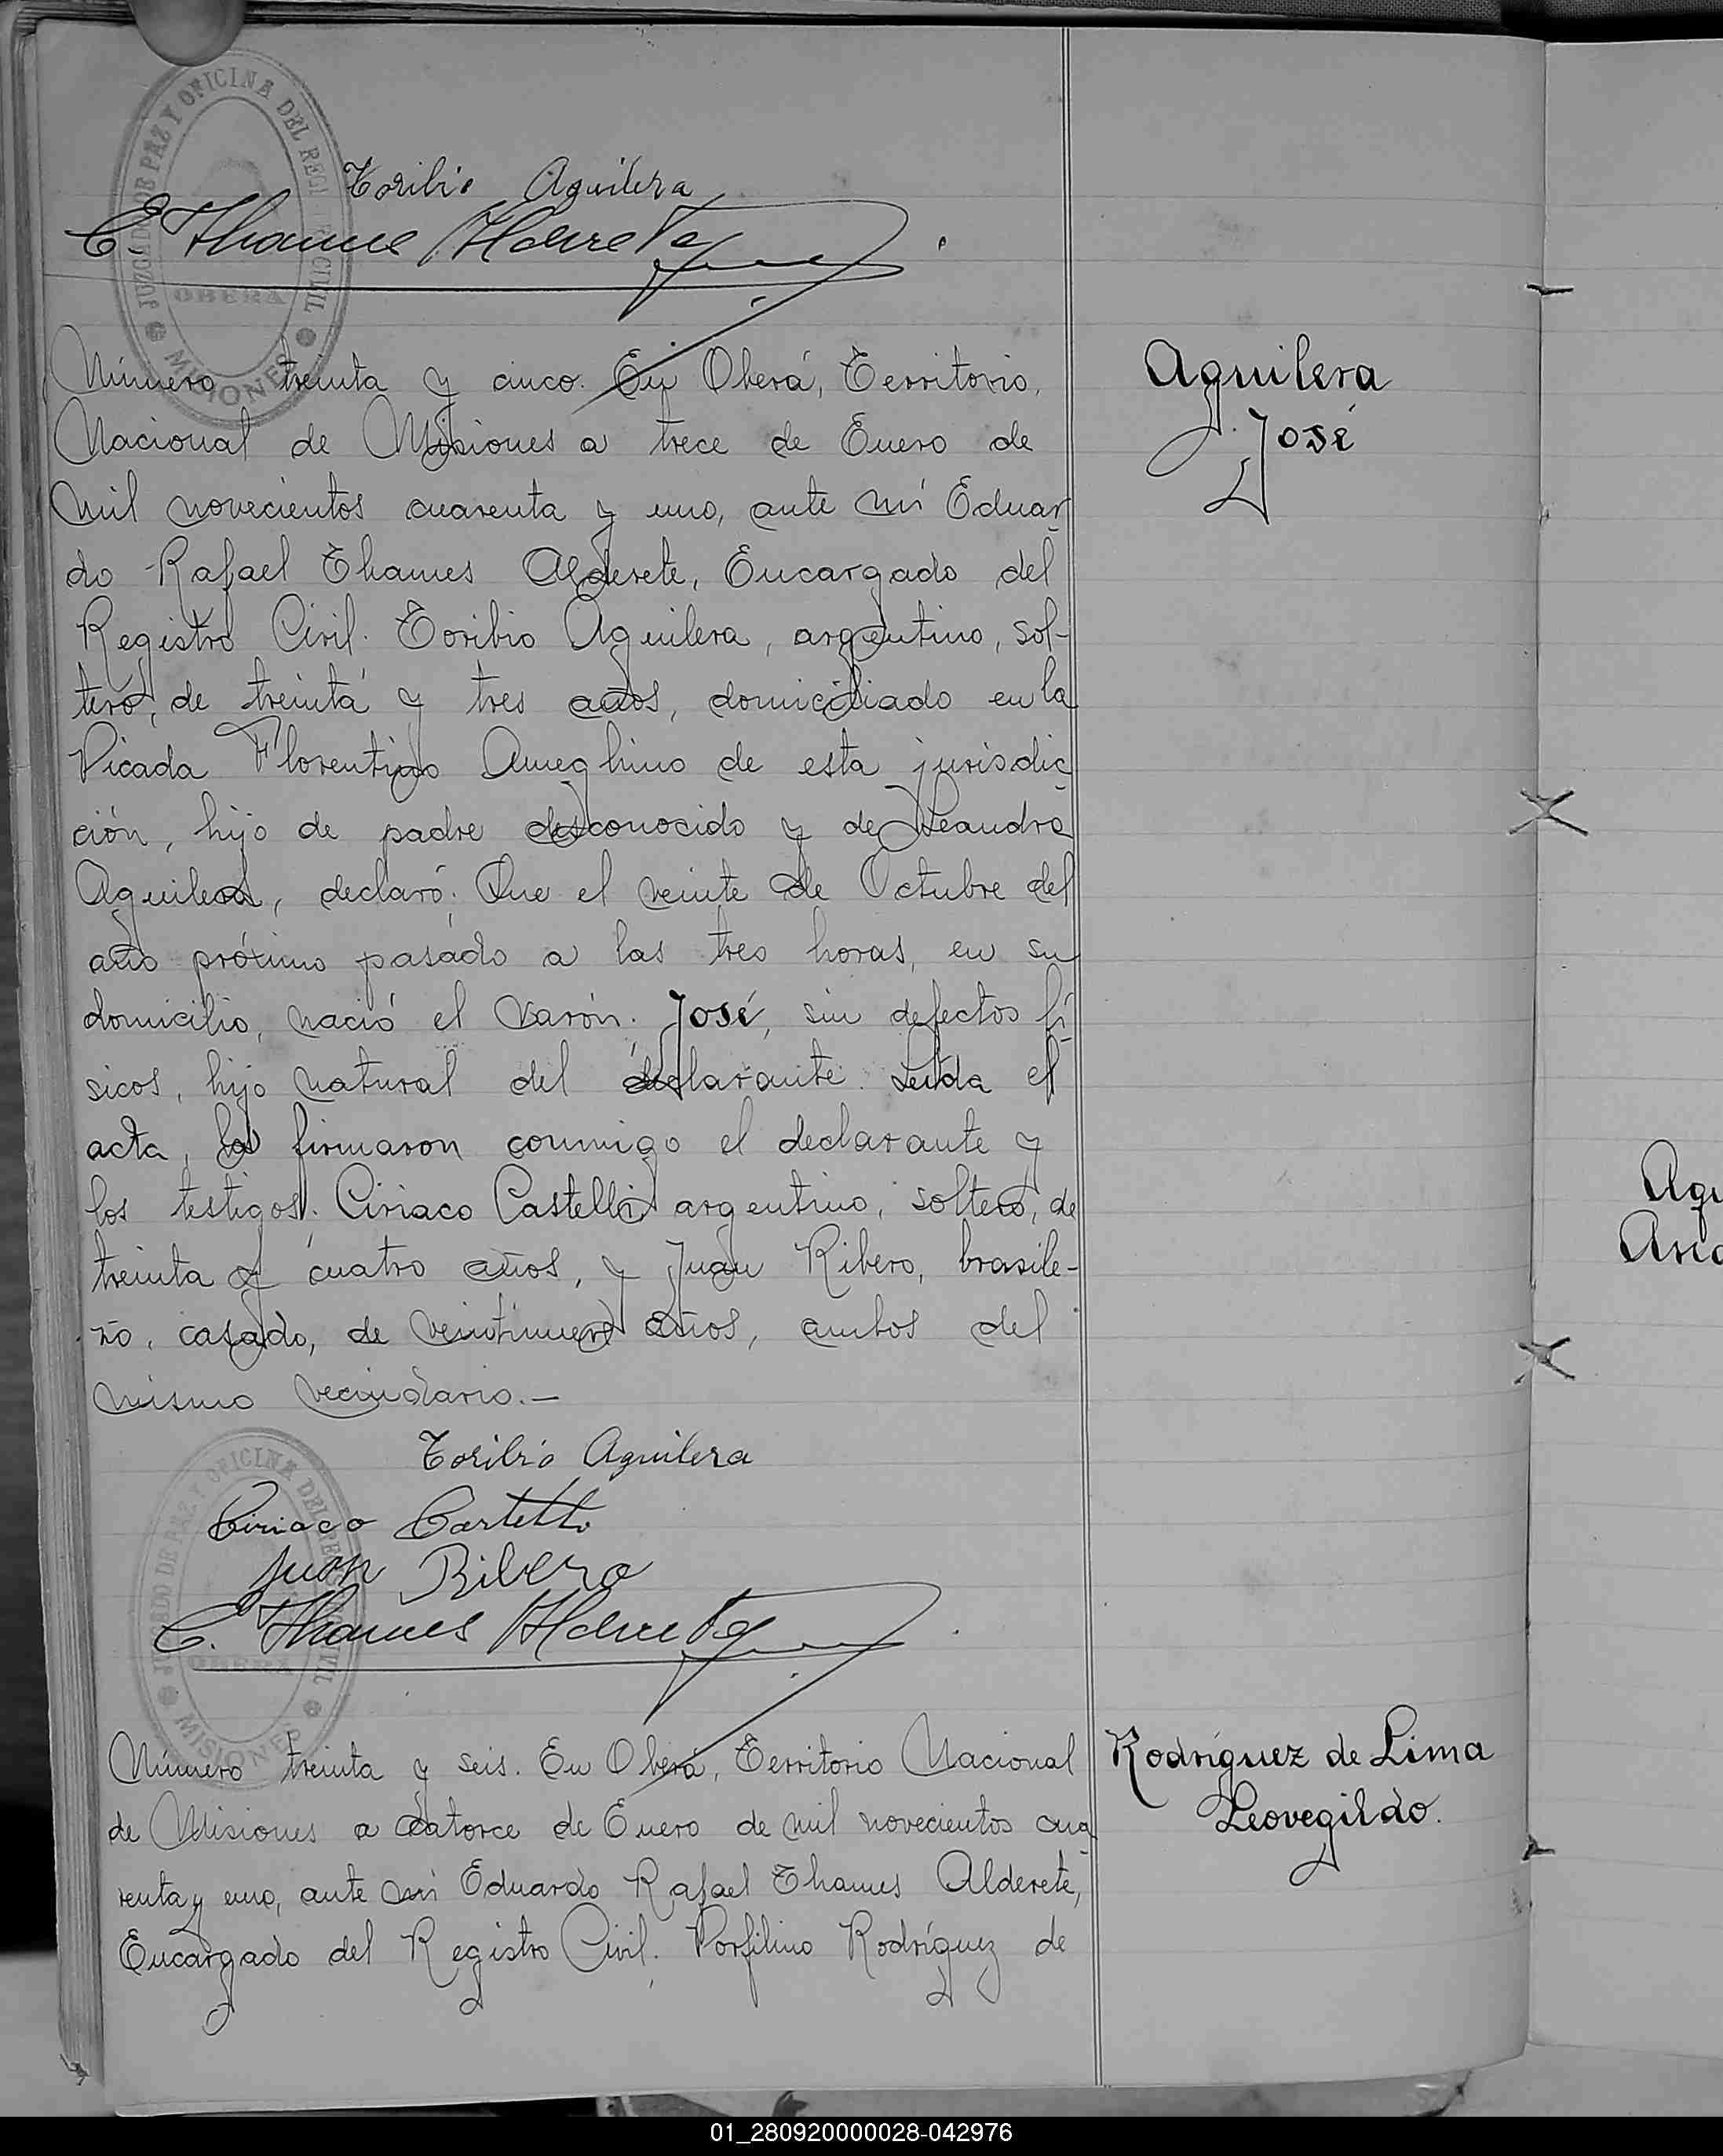 JUZGADO DE PAZ Y OFICINA DEL REGI CIVIL
OBERÁ
MISIONES
Toribio Aguilera
E. Thames Alderete
Número treinta y cinco. En Oberá, Territorio,
Nacional de Misiones a trece de Enero de
mil novecientos cuarenta y uno, ante mí Eduar
do Rafael Thames Alderete, Encargado del
Registro Civil. Toribio Aguilera, argentino, sol-
tero, de treinta y tres años, domiciliado en la
Picada Florentino Ameghino de esta jurisdic
ción, hijo de padre desconocido y de Leandra
Aguilera, declaró: Que el veinte de Octubre del
año próximo pasado a las tres horas, en su
domicilio, nació el varón: José, sin defectos fí
sicos, hijo natural del declarante. Leída el
acta, la firmaron conmigo el declarante y
los testigos: Ciriaco Castelli argentino, soltero, de
treinta y cuatro años, y Juan Ribero, brasile-
ño, casado, de años, ambos del
mismo vecindario.—
Toribio Aguilera
Ciriaco
Juan Ribero
E. Thames Alderete
JUZGADO DE PAZ Y OFICINA DEL REGI CIVIL
OBERÁ
MISIONES
Número treinta y seis. En Oberá, Territorio Nacional
de Misiones a catorce de Enero de mil novecientos cua
renta y uno, ante mí Eduardo Rafael Thames Alderete,
Encargado del Registro Civil. Porfilino Rodríguez de
Aguilera
José
Rodríguez de Lima
Leovegildo.
Agu
01_280920000028-042976